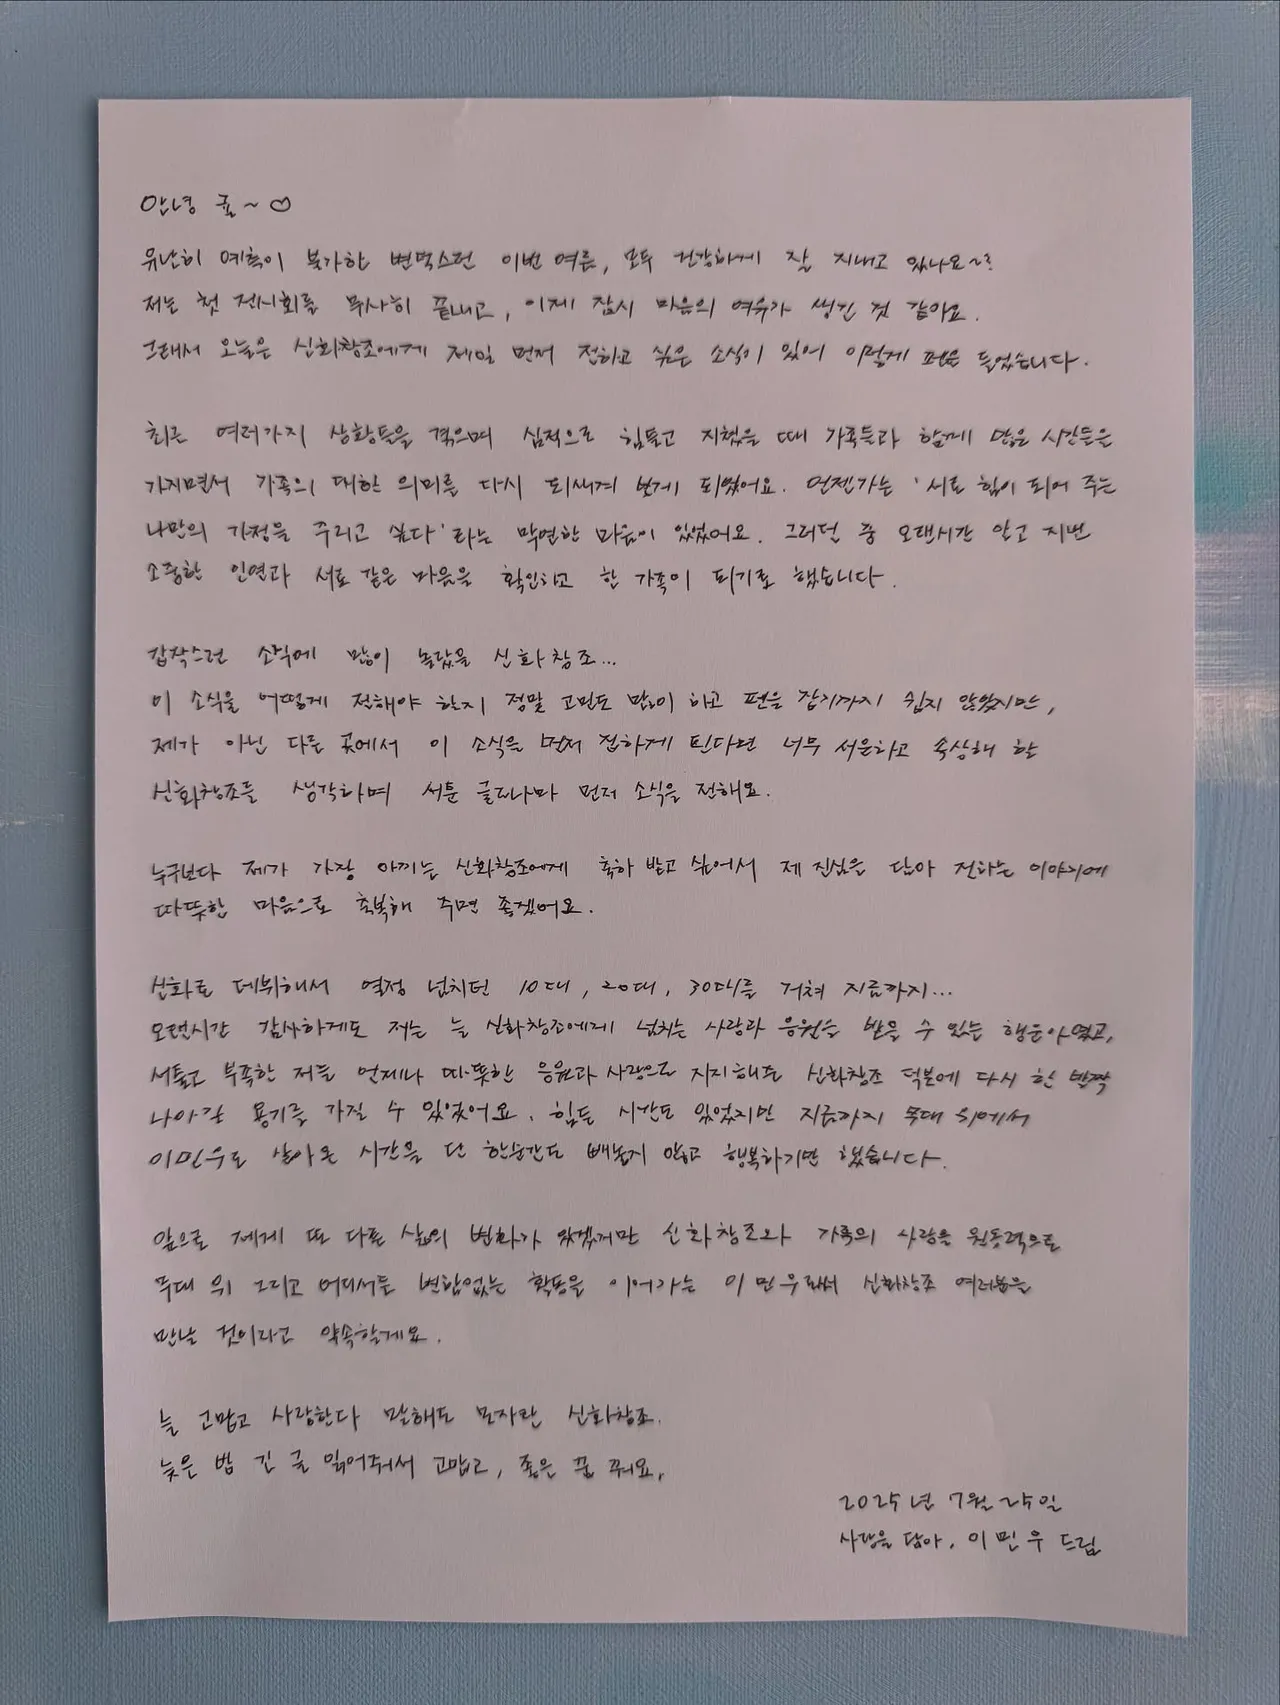 안녕 귤~♡
유난히 예측이 불가한 변덕스런 이번 여름, 모두 건강하게 잘 지내고 있나요~?
저는 첫 전시회를 무사히 끝내고, 이제 잠시 마음의 여유가 생긴 것 같아요.
그래서 오늘은 신화창조에게 제일 먼저 전하고 싶은 소식이 있어 이렇게 펜을 들었습니다.
최근 여러가지 상황들을 겪으며 심적으로 힘들고 지쳤을 때 가족들과 함께 많은 시간들은
가지면서 가족의 대한 의미를 다시 되새겨 보게 되었어요. 언젠가는 '서로 힘이 되어 주는
나만의 가정을 꾸리고 싶다'라는 막연한 마음이 있었어요. 그러던 중 오랜시간 알고 지낸
소중한 인연과 서로 같은 마음을 확인하고 한 가족이 되기로 했습니다.
갑작스런 소식에 많이 놀랐을 신화창조...
이 소식을 어떻게 전해야 할지 정말 고민도 많이 하고 펜을 잡기까지 쉽지 않았지만,
제가 아닌 다른 곳에서 이 소식을 먼저 전하게 된다면 너무 서운하고 속상해 할
신화창조들 생각하며 서툰 글로나마 먼저 소식을 전해요.
누구보다 제가 가장 아끼는 신화창조에게 축하 받고 싶어서 제 진심을 담아 전하는 이야기에
따뜻한 마음으로 축복해 주면 좋겠어요.
신화로 데뷔해서 열정 넘치던 10대, 20대, 30대를 거쳐 지금까지...
오랜시간 감사하게도 저는 늘 신화창조에게 넘치는 사랑과 응원을 받을 수 있는 행운아였고,
서툴고 부족한 저를 언제나 따뜻한 응원과 사랑으로 지지해준 신화창조 덕분에 다시 한 발짝
나아갈 용기를 가질 수 있었어요. 힘든 시간도 있었지만 지금까지 무대 위에서
이민우로 살아온 시간을 단 한순간도 빼놓지 않고 행복하기만 했습니다.
앞으로 제게 또 다른 삶의 변화가 있겠지만 신화창조와 가족의 사랑을 원동력으로
무대 위 그리고 어디서든 변함없는 활동을 이어가는 이민우로써 신화창조 여러분을
만날 것이라고 약속할게요.
늘 고맙고 사랑한다 말해도 모자란 신화창조.
늦은 밤 긴 글 읽어줘서 고맙고, 좋은 꿈 꿔요.
2025년 7월 25일
사랑을 담아, 이민우 드림